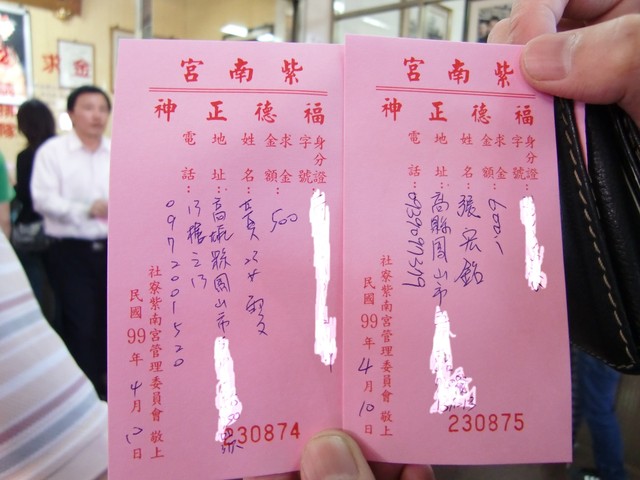 求金
宮南紫
神正德福
身分證字號：
求金金額：500
姓名：
地址：高雄縣鳳山市
13樓之13
電話：0972001520
社寮紫南宮管理委員會 敬上
民國99年4月10日
230874
宮南紫
神正德福
身分證字號：
求金金額：600
姓名：張宏銘
地址：高縣鳳山市
電話：0939097319
社寮紫南宮管理委員會 敬上
民國99年4月10日
230875